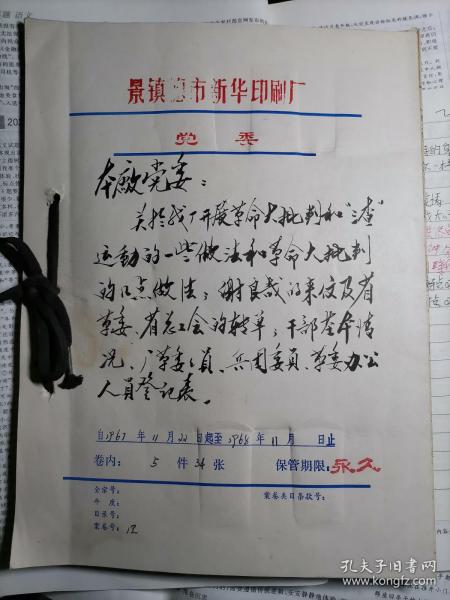 景镇 市新华印刷厂
党委
本廠党委：
关於我厂开展革命大批判和“三查”
运动的一些做法和革命大批判
的几点做法；谢良哉的来信及省
革委、省总工会的转单；干部基本情
况、厂革委委员、兵团委员、革委办公
人员登记表。
自1967年11月22日起至1968年11月 日止
卷内：5件34张 保管期限：永久
全宗号：
年度：
目录号：
案卷号：12
案卷类目条款号：
孔夫子旧书网